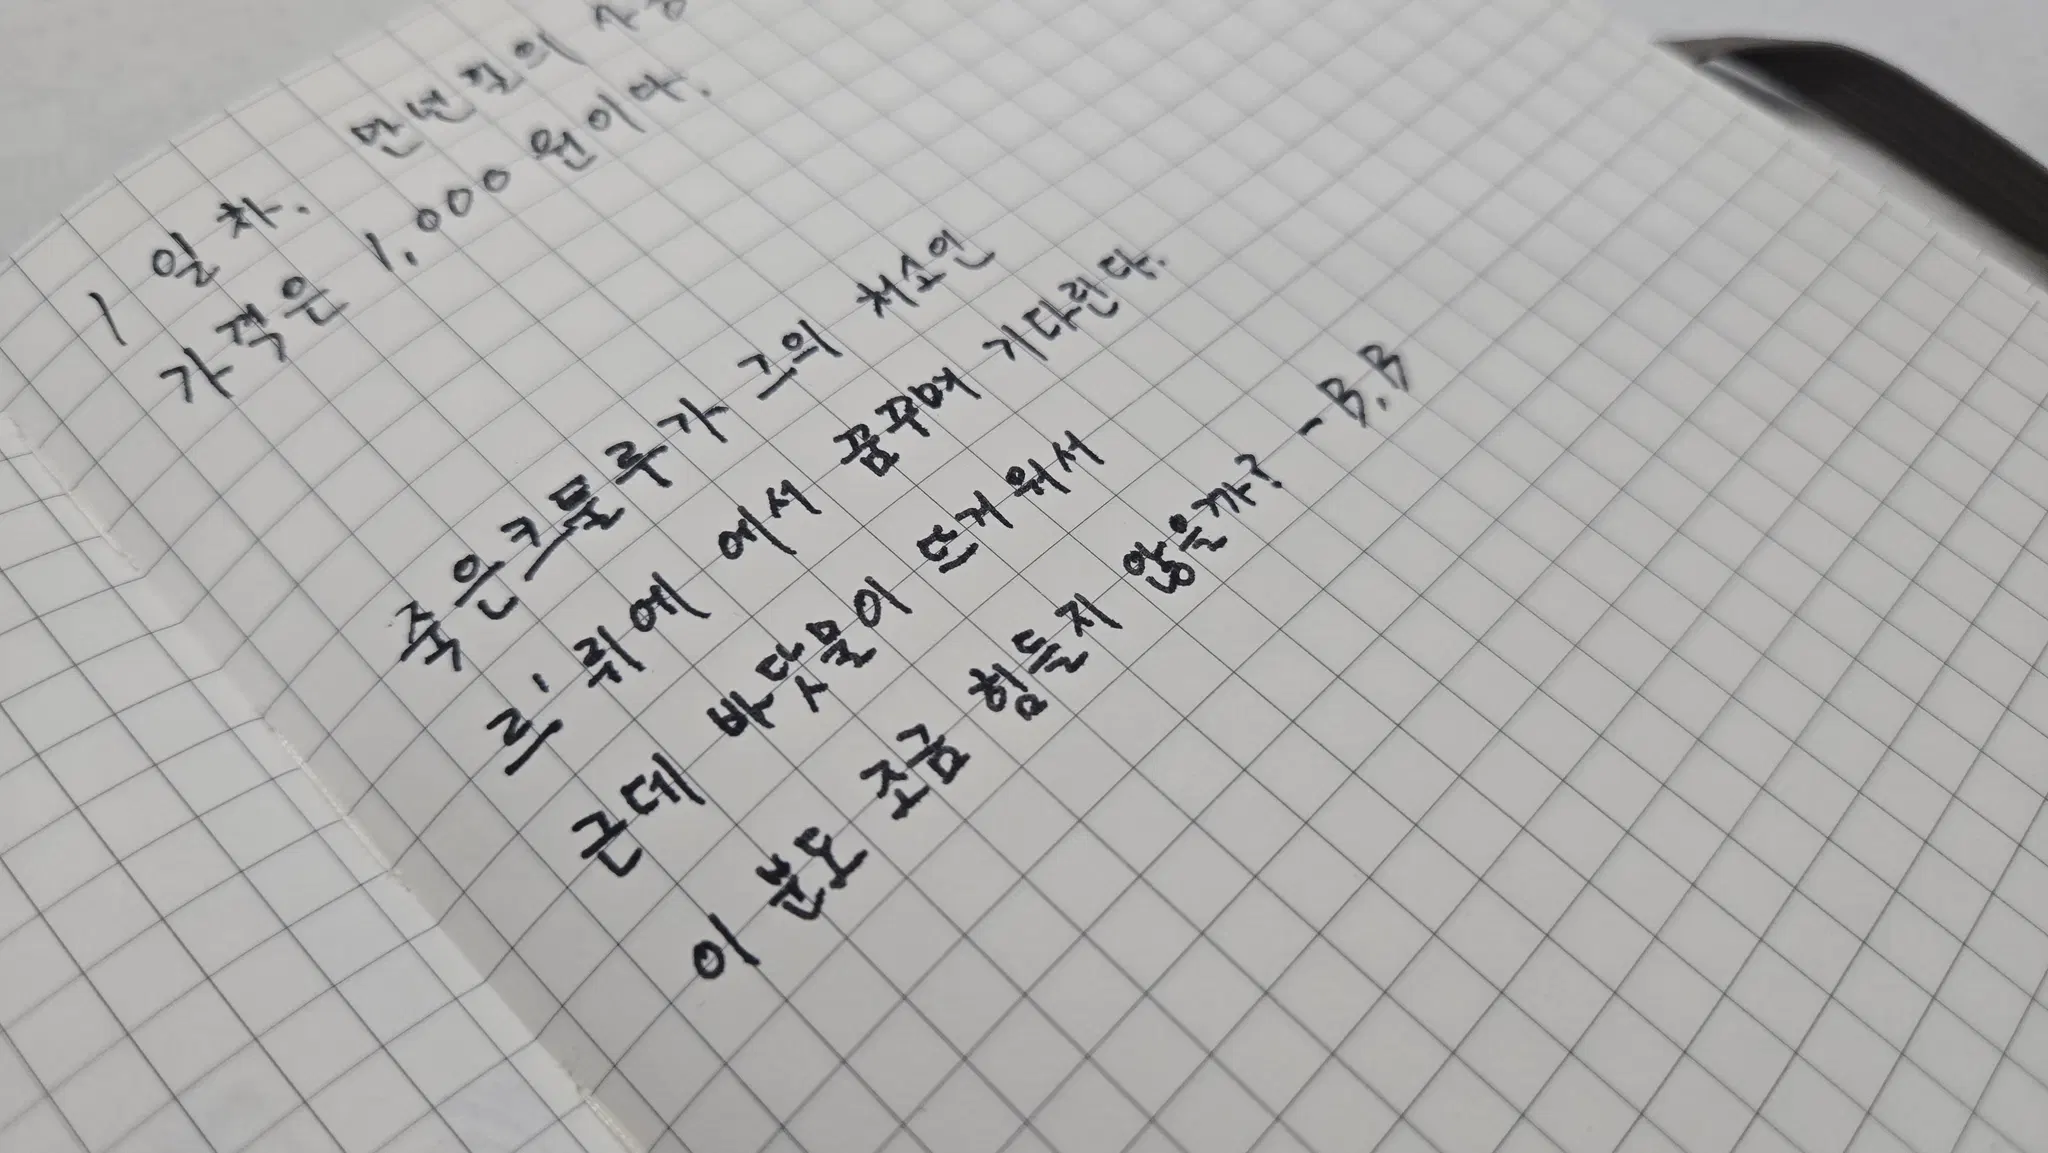 1일차. 만년필의
가격은 1,000원이다.
죽은 크툴루가 그의 처소인
르'뤼에 에서 꿈꾸며 기다린다.
근데 바닷물이 뜨거워서
이 분도 조금 힘들지 않을까? - B.B